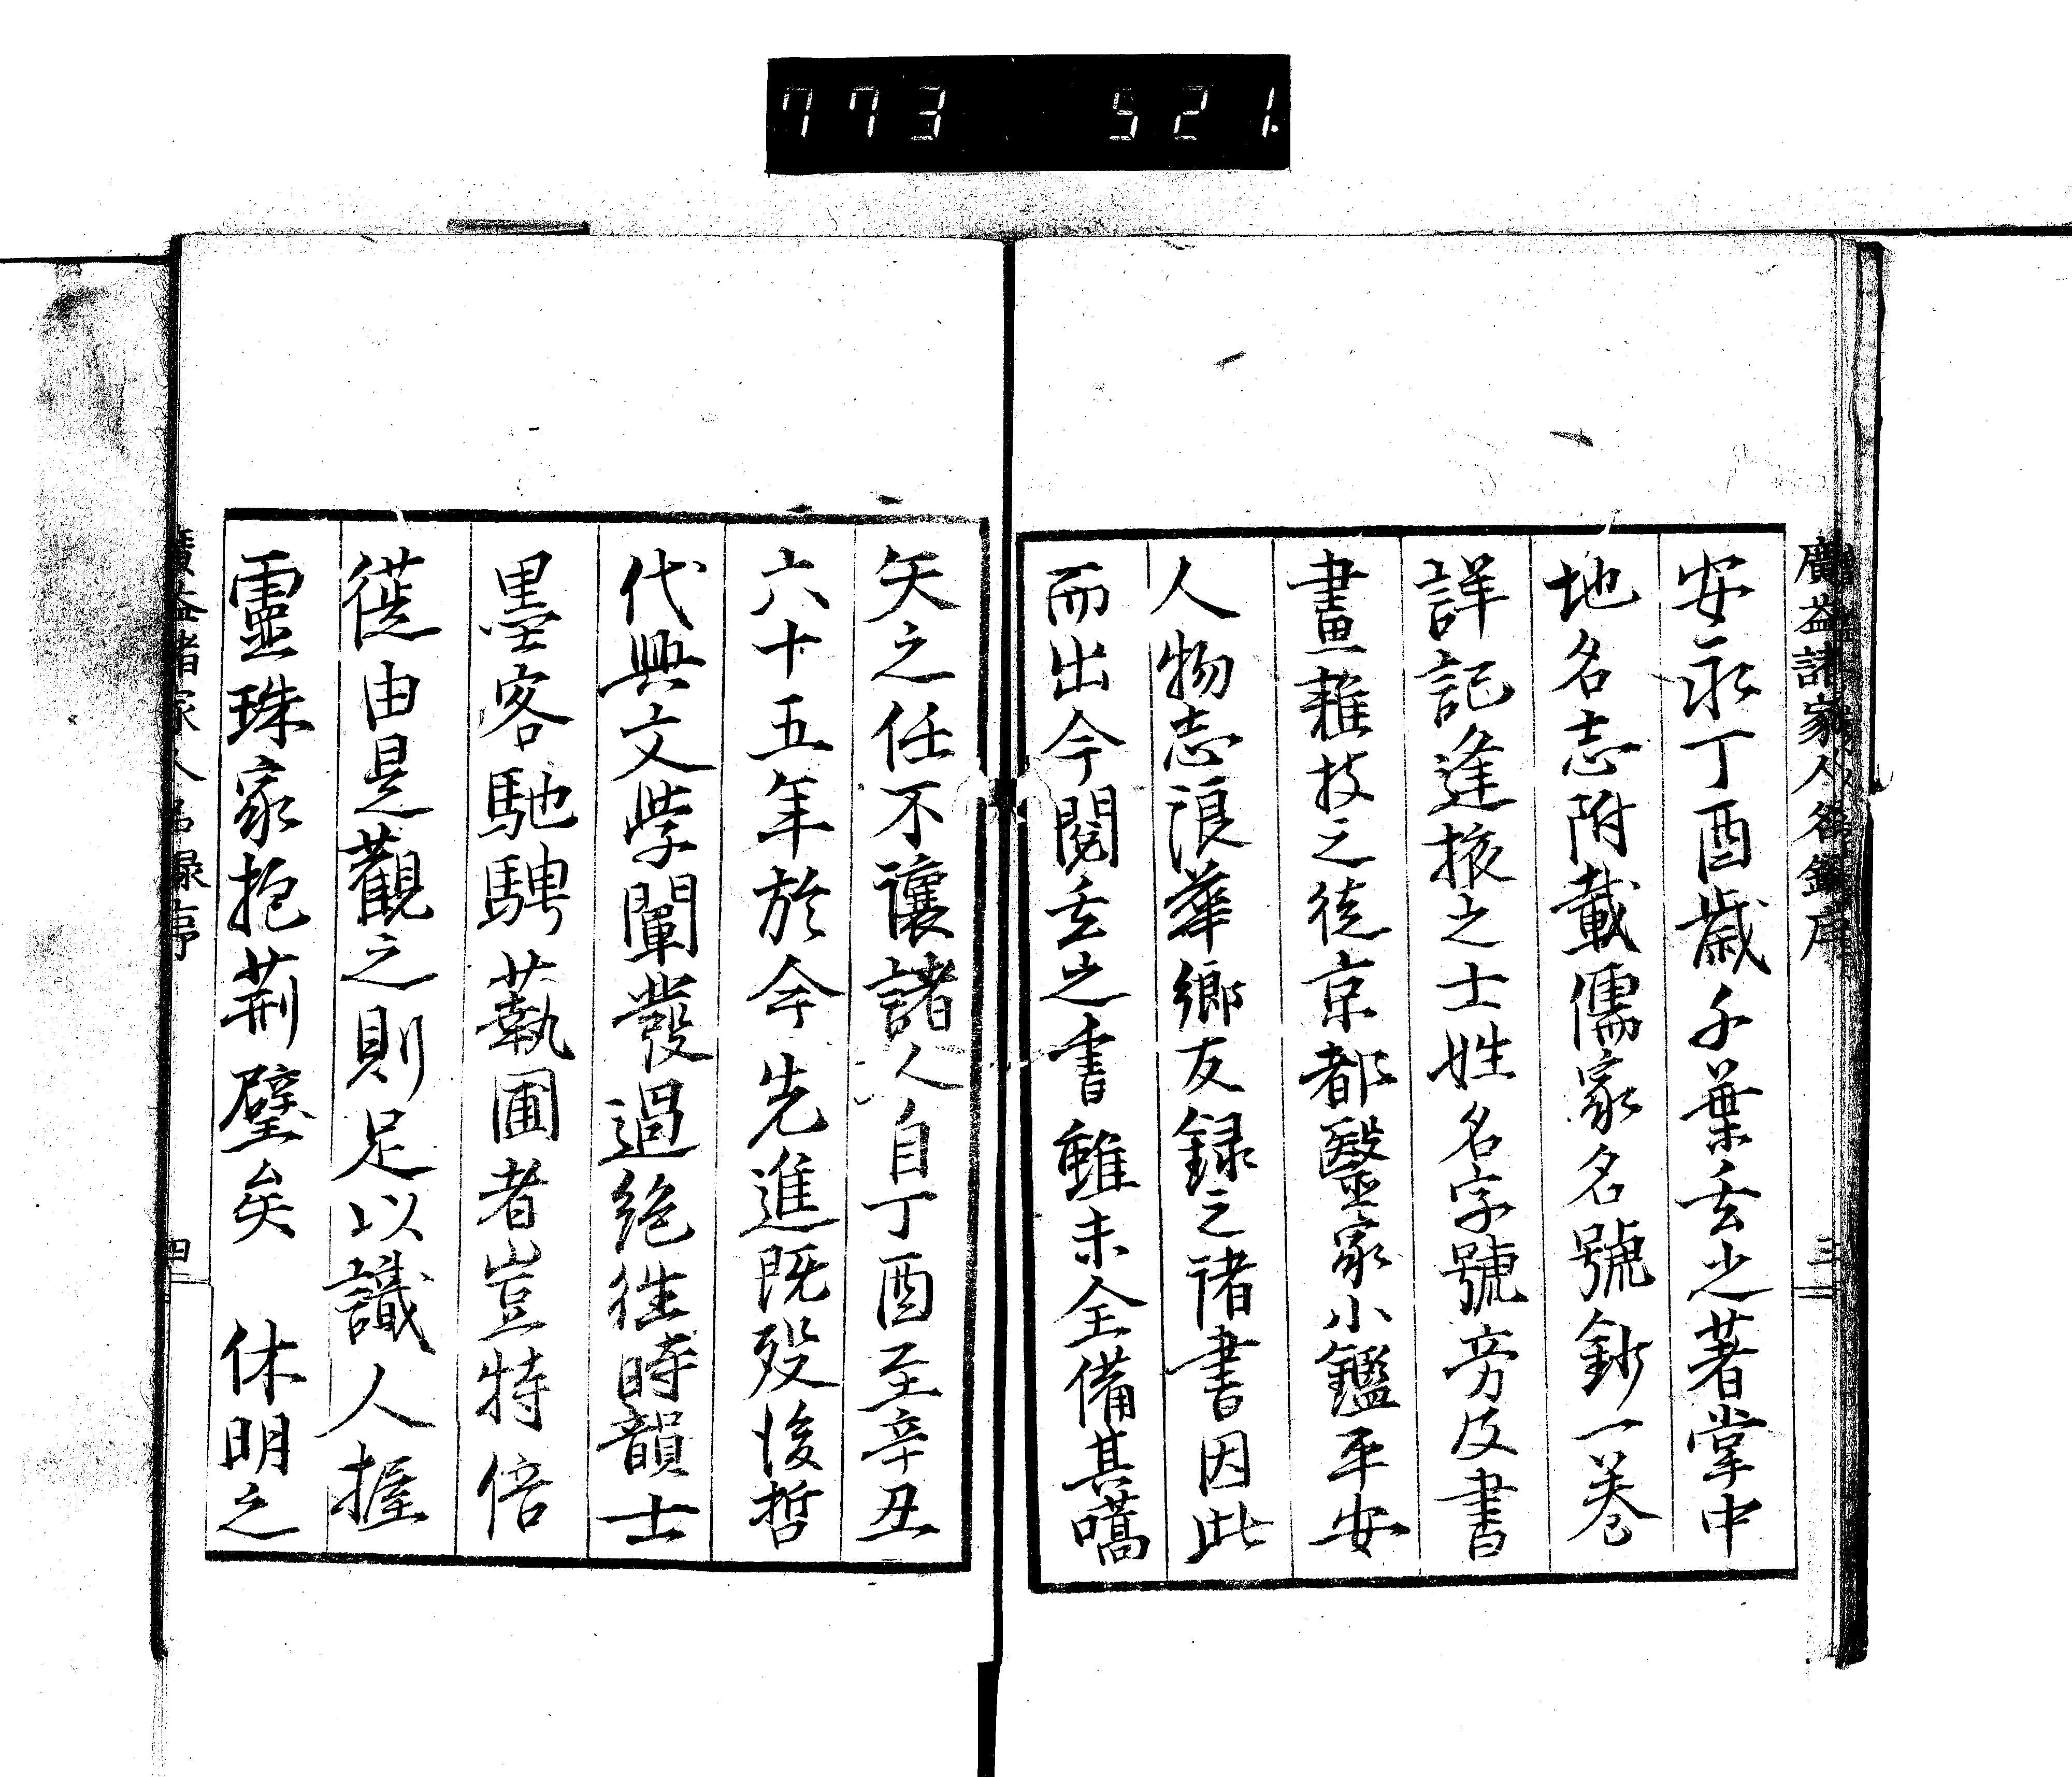 773 521.
廣益諸家人名録序
安永丁酉歳千葉玄之著掌中
地名志附載儒家名號鈔一巻
詳記逢掖之士姓名字號旁及書
畫雜技之徒京都醫家小鑑平安
人物志浪華郷友録之諸書因此
而出今閲玄之書雖未全備其嚆
三
矢之任不讓諸人自丁酉至辛丑
六十五年於今先進既歿後哲
代興文學闡發過絶往時韻士
墨客馳騁藝圃者豈特倍
蓰由是觀之則足以識人握
靈珠家抱荊璧矣 休明之
廣益諸家人名録序
四